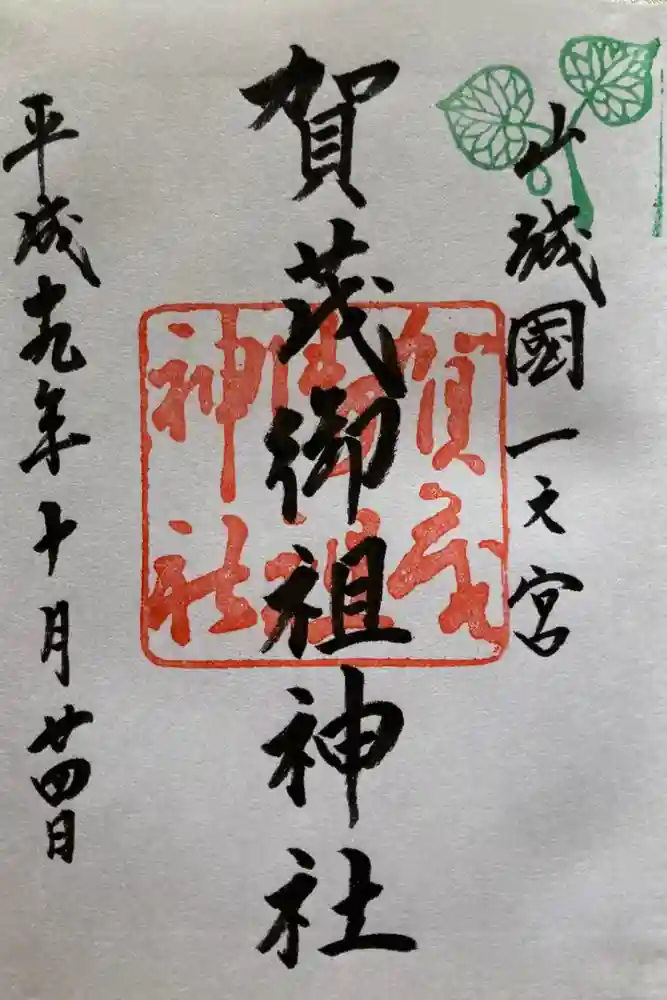 山城國一之宮
賀茂御祖神社
賀茂
御祖
神社
平成十九年十月廿四日